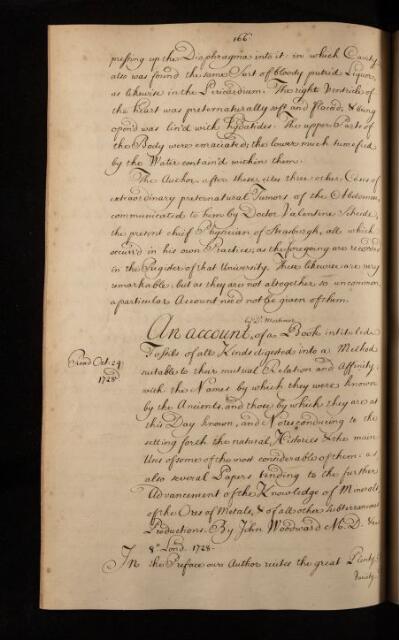 166
pressing up the Diaphragma into it: in which Cavity
also was found the same Sort of bloody putrid Liquor,
as likewise in the Pericardium. The right Ventricle of
the heart was preternaturally soft and flaccid, & being
open'd was lin'd with hydatides. The upper Parts of
the Body were emaciated; the lower much tumefied
by the Water contain'd within them.
The Author after these cites three other Cases of
extraordinary preternatural Tumors of the Abdomen
communicated to him by Doctor Valentine Scheide,
the present chief Physician of Strasburgh, all which
occurr'd in his own Practice, as the foregoing are recorded
in the Register of that University. These likewise are very
remarkable, but as they are not altogether so uncommon,
a particular Account need not be given of them.
by Dr. Mortimer
An account, of a Book intituled
Fossils of all Kinds digested into a Method
Read Oct. 24
1728
suitable to their mutual Relation and Affinity;
with the Names by which they were known
by the Ancients, and those by which they are at
this Day known, and Notes conducing to the
setting forth the natural Histories & the main
Uses of some of the most considerable of them: as
also several Papers tending to the further
Advancement of the Knowledge of Minerals,
of the Ores of Metals, & of all other Subterraneous
Productions. By John Woodward M. D. &c
8o. Lond. 1728.
In the Preface our Author recites the great Plenty &
Variety